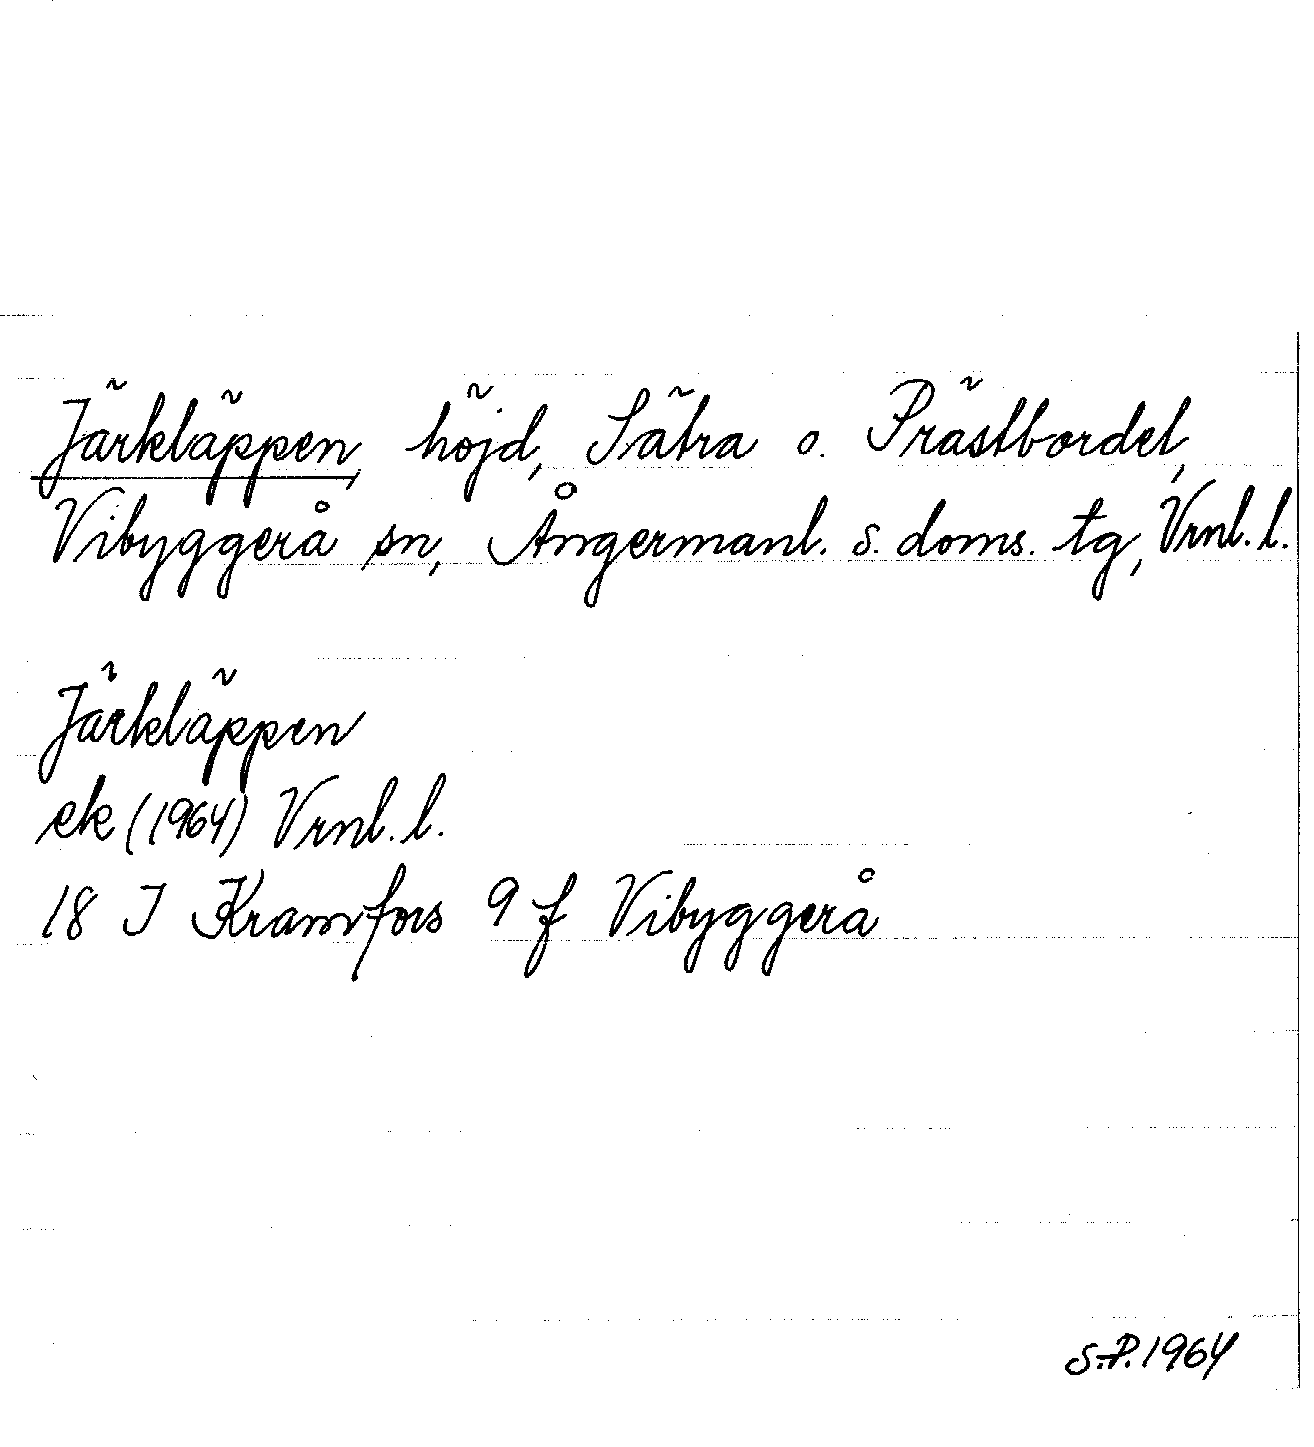 Järkläppen, höjd, Sätra o. Prästbordet,
Vibyggerå sn, Ångermanl. s. doms. tg, Vrnl. l.
Järkläppen
ek (1964) Vrnl. l.
18 I Kramfors 9 f Vibyggerå
S.P. 1964